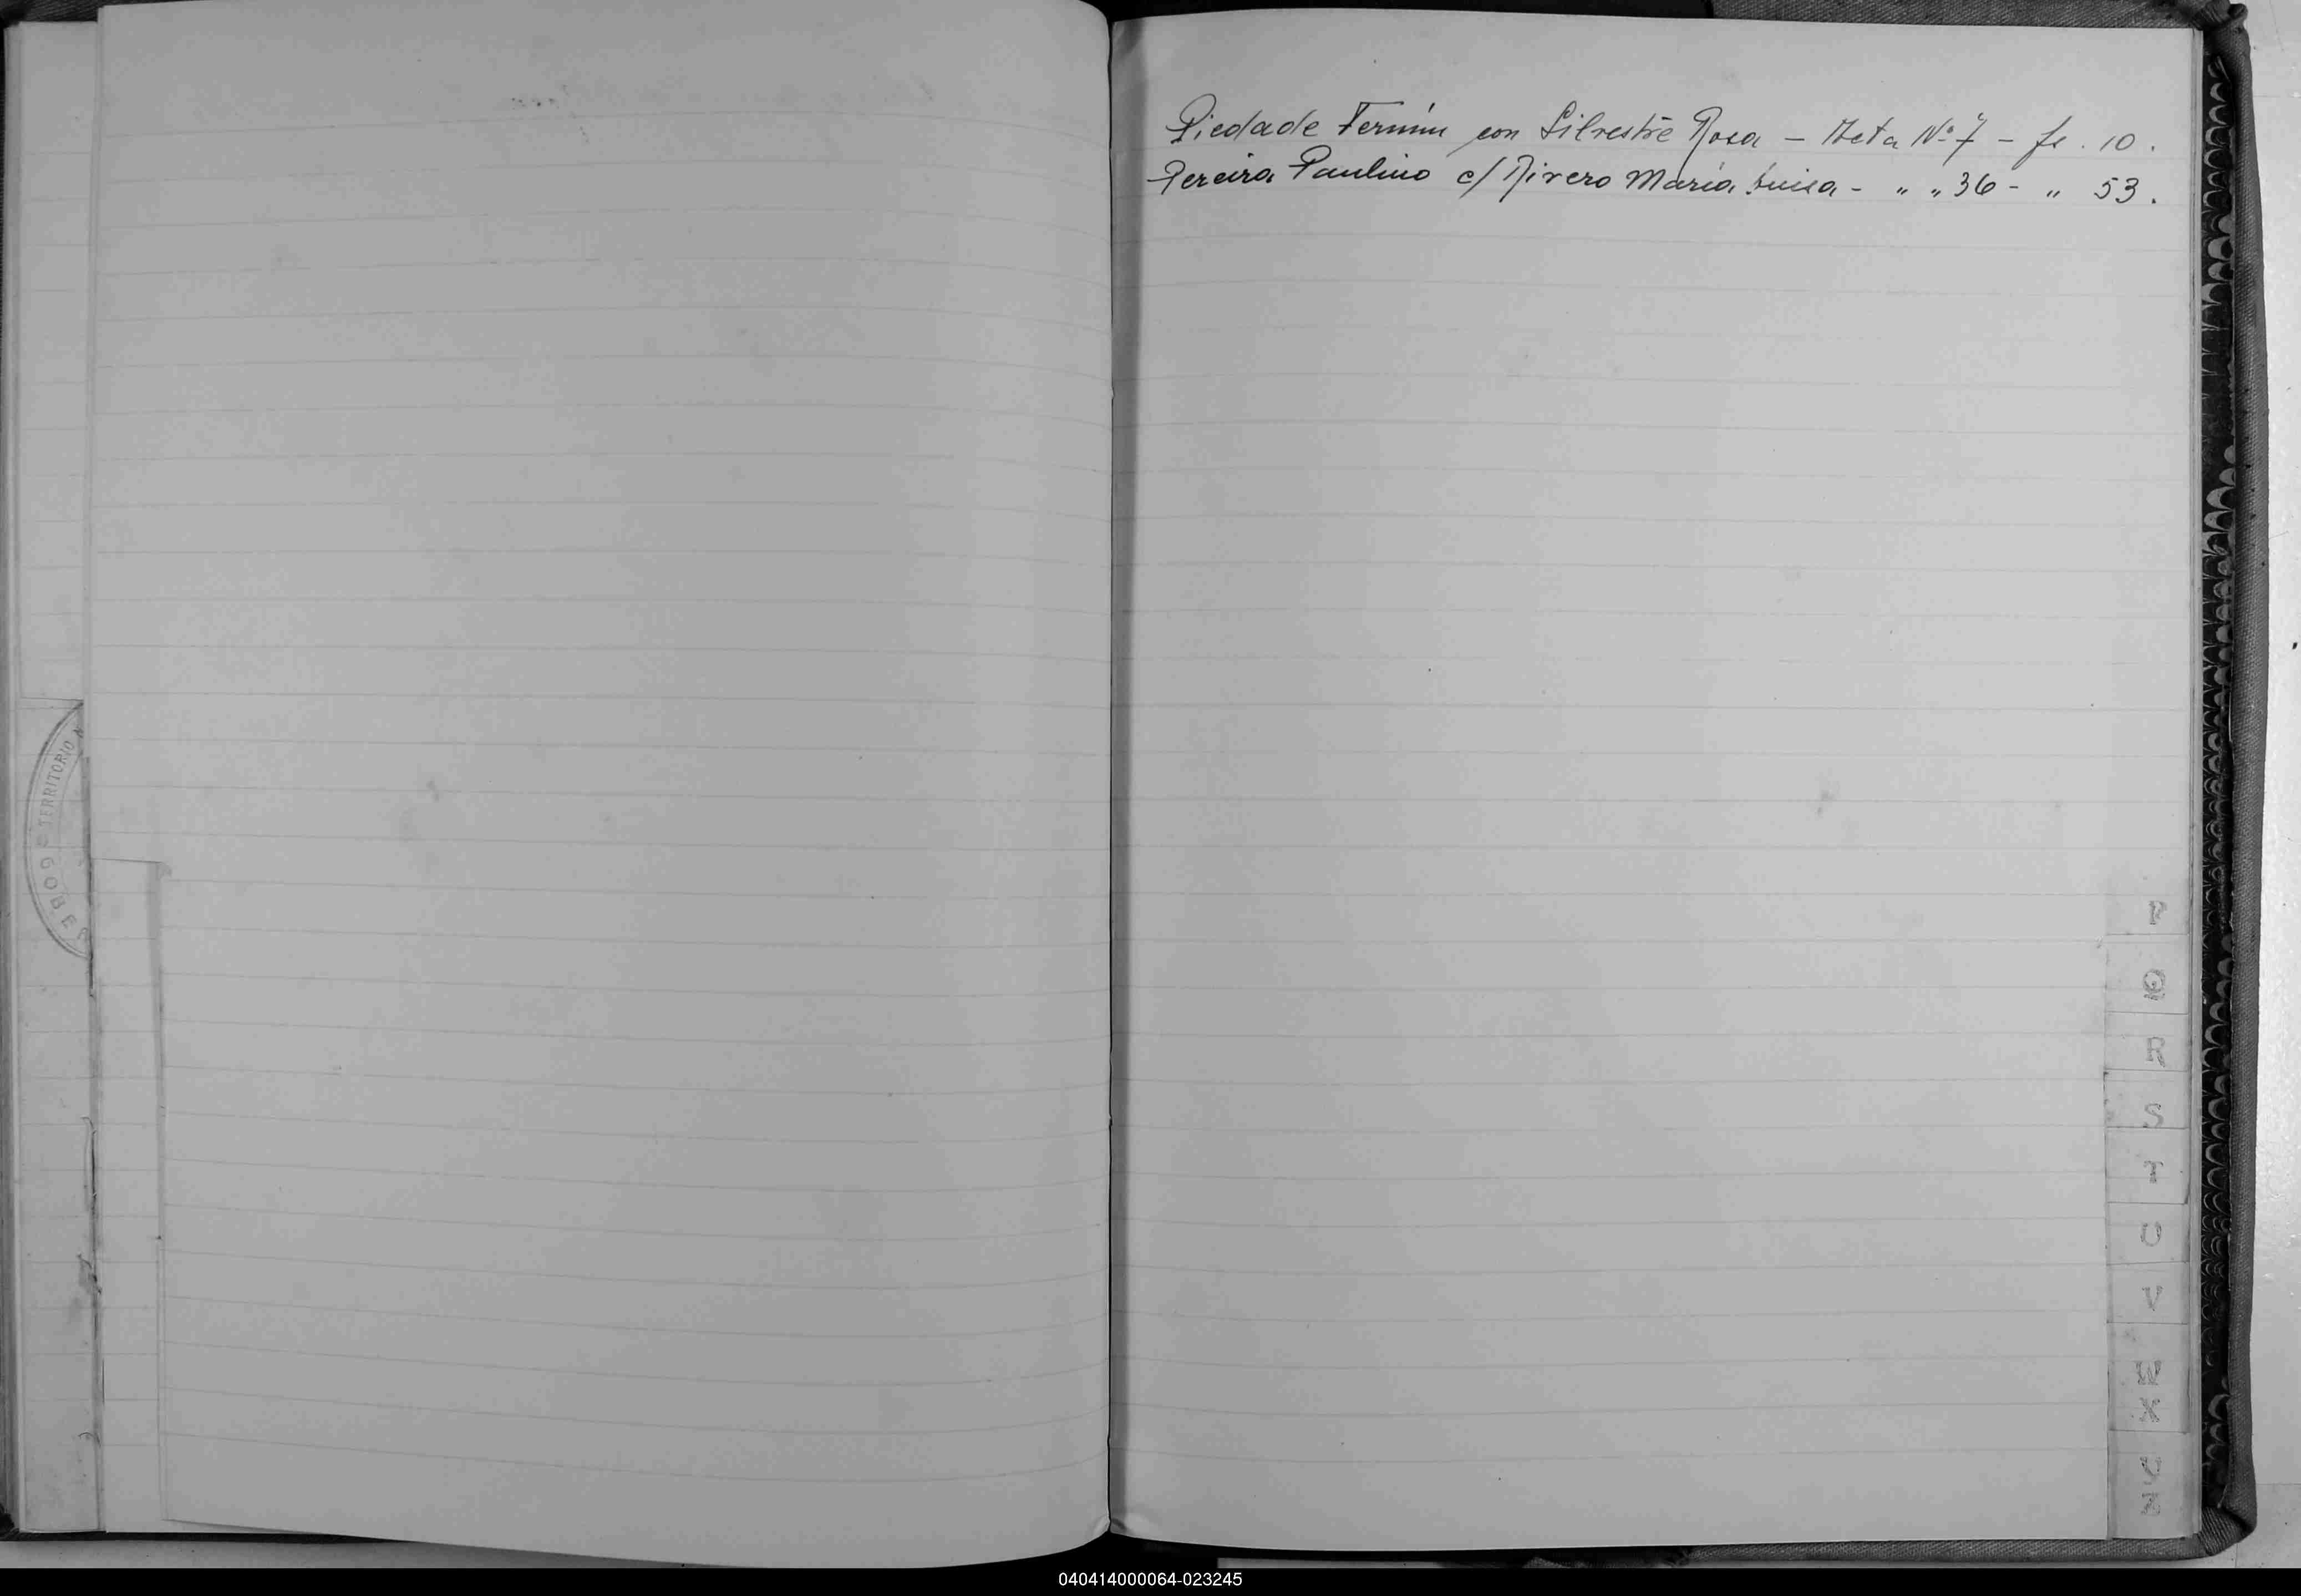 Piedade Fermín con Silvestre Rosa - Acta Nº 7 - fs. 10.
Pereira Paulino c/ Rivero María Luisa - " " 36 - " 53.
TERRITORIO
GOBE
P
Q
R
S
T
U
V
W
X
040414000064-023245